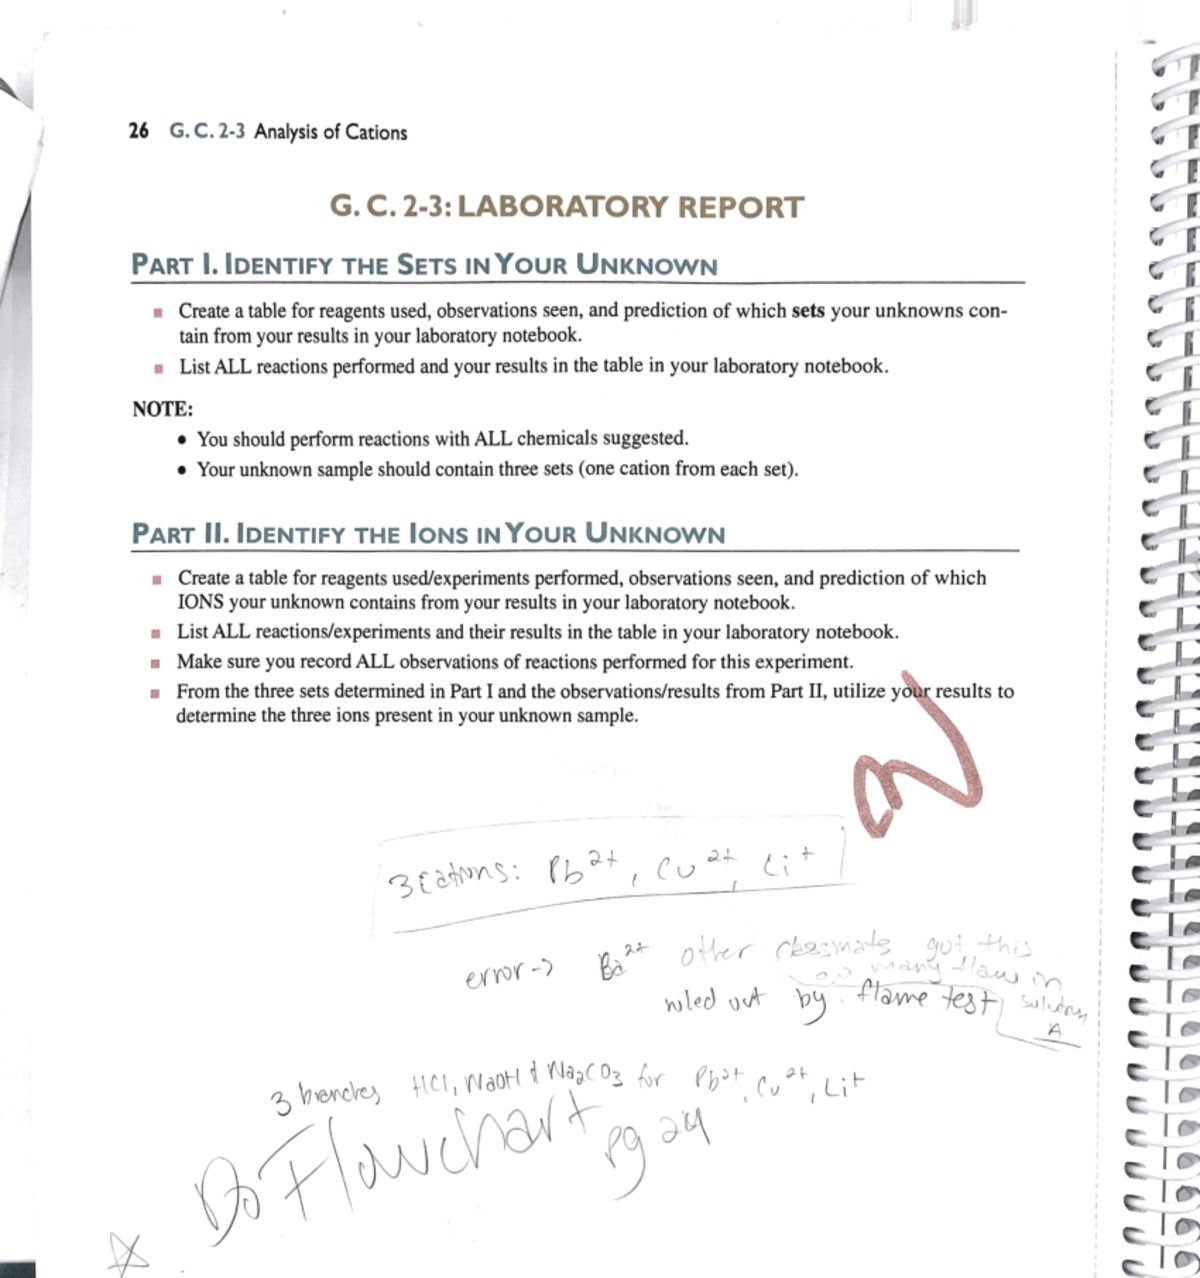 26 G. C. 2-3 Analysis of Cations
G. C. 2-3: LABORATORY REPORT
PART I. IDENTIFY THE SETS IN YOUR UNKNOWN
▪ Create a table for reagents used, observations seen, and prediction of which sets your unknowns con-
tain from your results in your laboratory notebook.
▪ List ALL reactions performed and your results in the table in your laboratory notebook.
NOTE:
• You should perform reactions with ALL chemicals suggested.
• Your unknown sample should contain three sets (one cation from each set).
PART II. IDENTIFY THE IONS IN YOUR UNKNOWN
▪ Create a table for reagents used/experiments performed, observations seen, and prediction of which
IONS your unknown contains from your results in your laboratory notebook.
▪ List ALL reactions/experiments and their results in the table in your laboratory notebook.
▪ Make sure you record ALL observations of reactions performed for this experiment.
▪ From the three sets determined in Part I and the observations/results from Part II, utilize your results to
determine the three ions present in your unknown sample.
3 cations: Pb²⁺, Cu²⁺, Li⁺
error -> Ba²⁺ other classmate got this
many flaw in
ruled out by flame test solution
A
3 branches HCl, NaOH & Na₂CO₃ for Pb²⁺, Cu²⁺, Li⁺
Do Flowchart pg 24